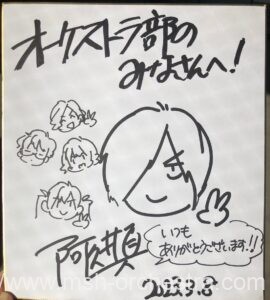 オーケストラ部の
みなさんへ！
いつも
ありがとうございます!!
阿久井真
2023.9.8